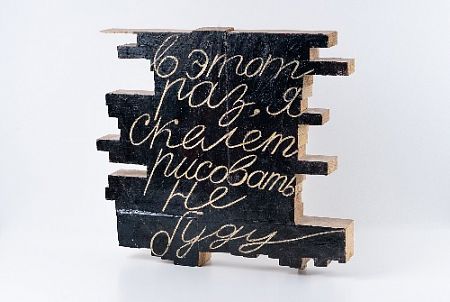 в этот
раз, я
скелет
рисовать
не
буду